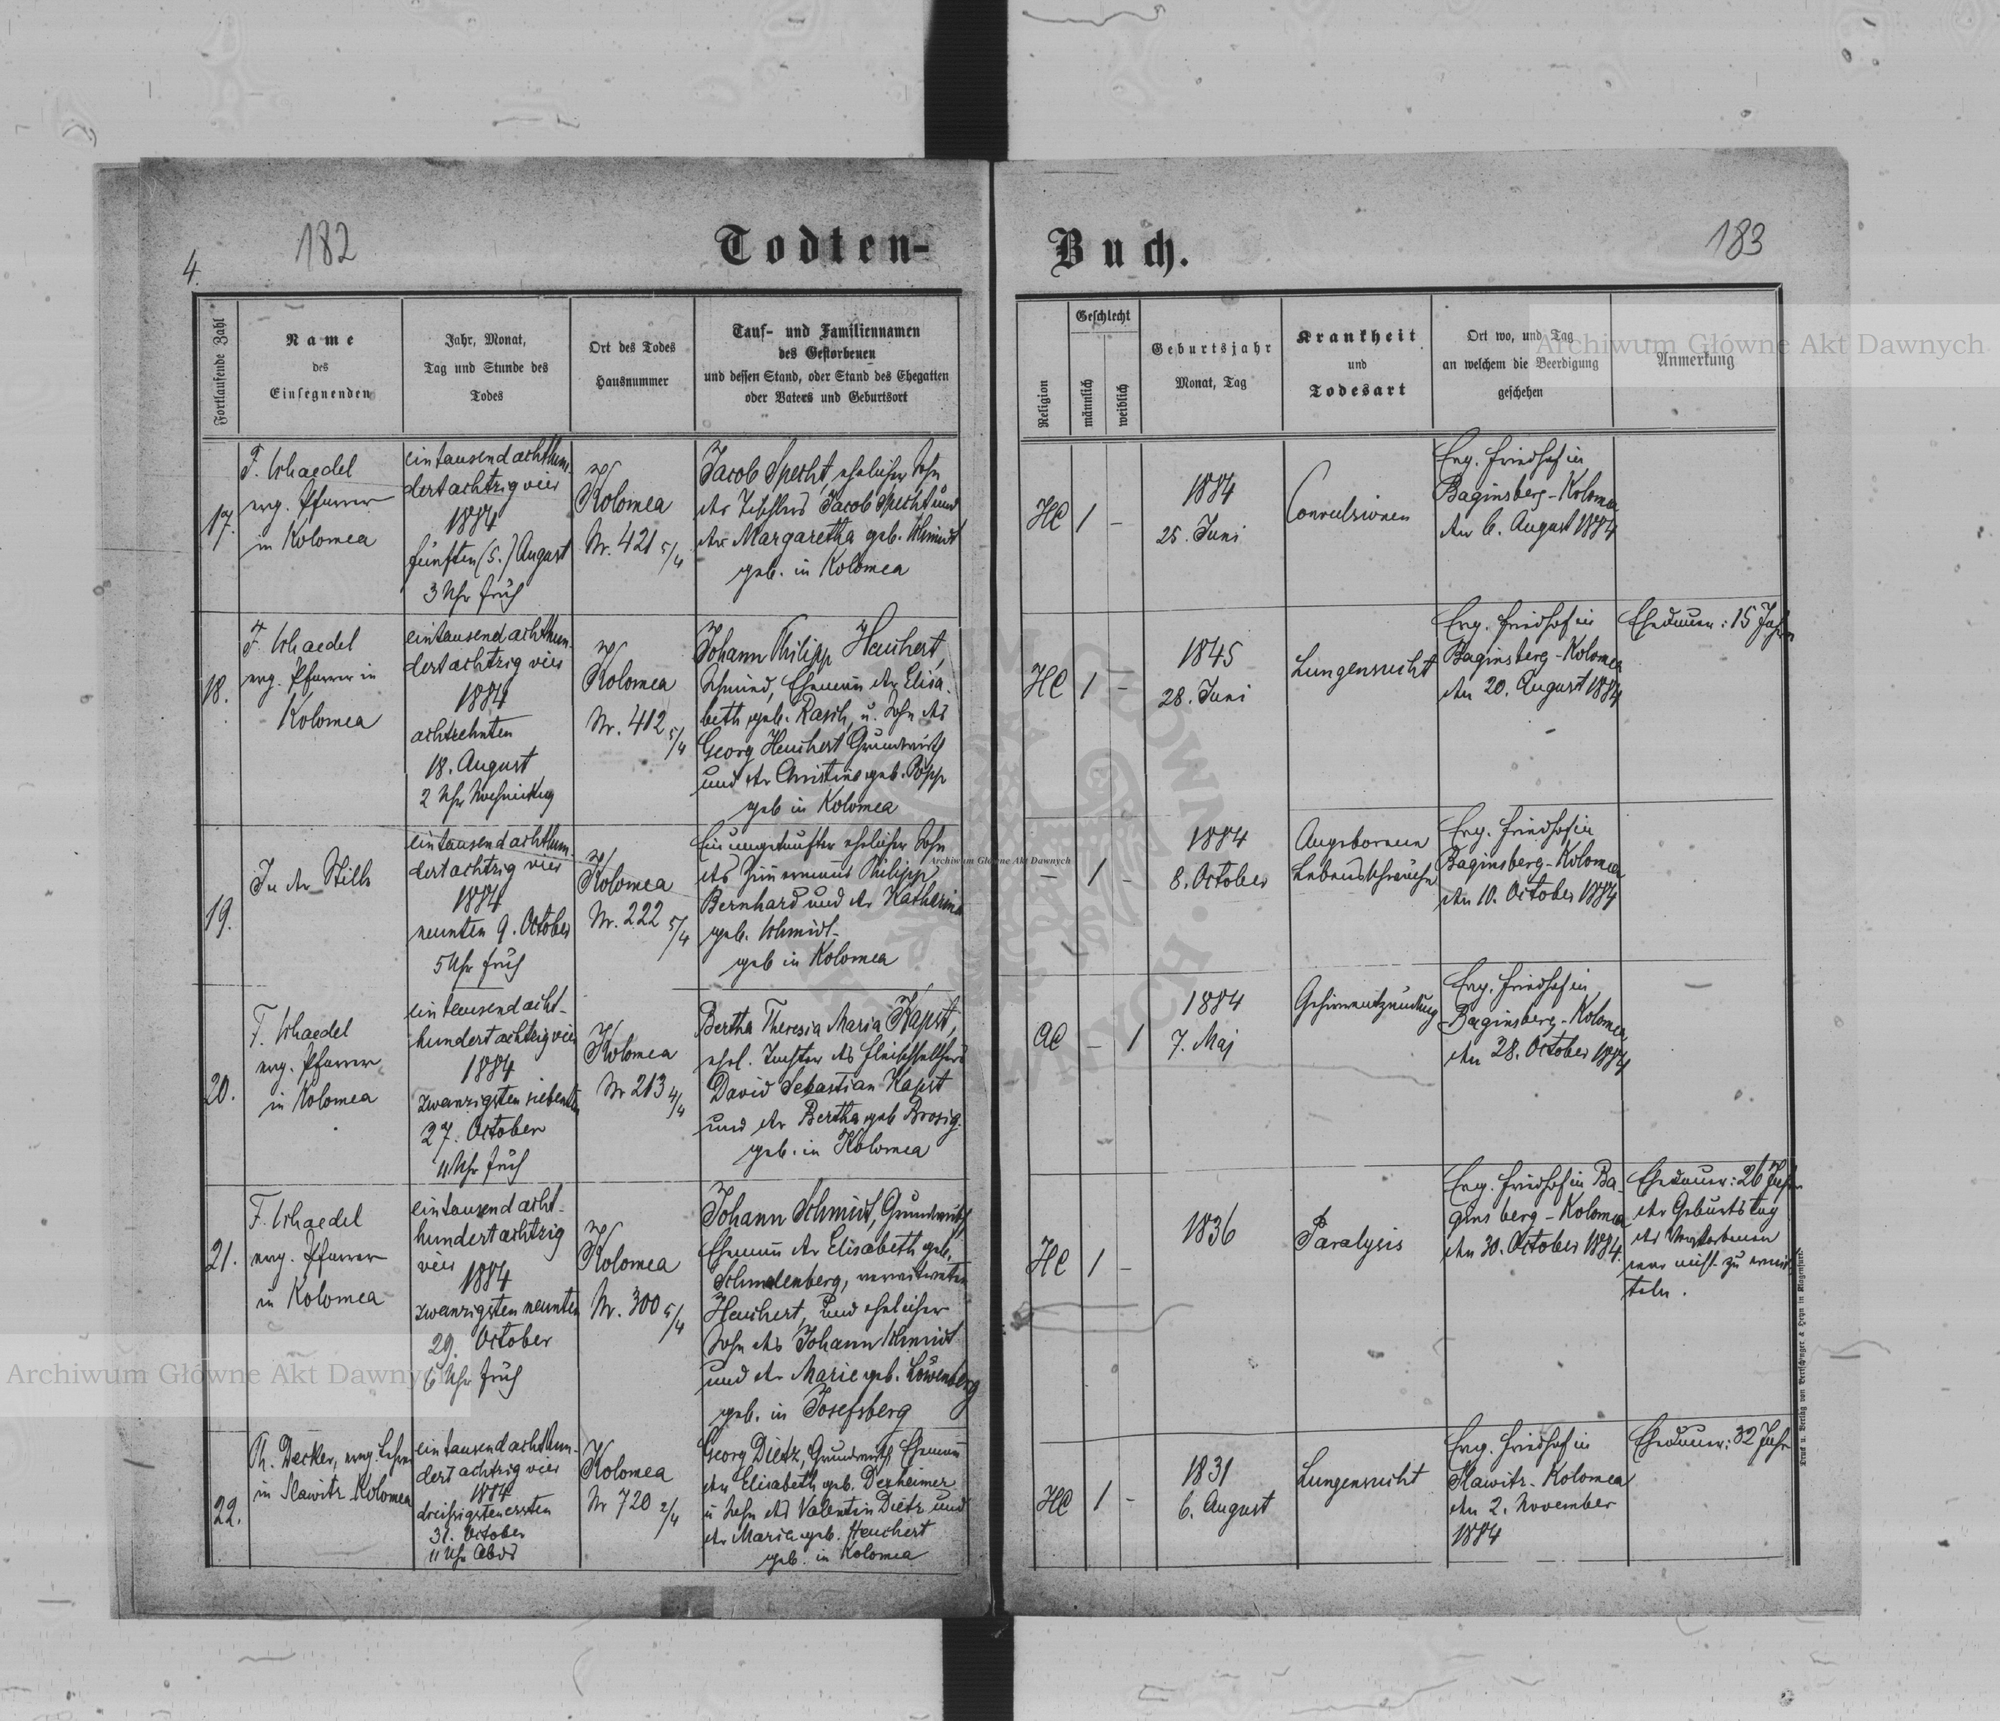 182
4.
Todten-
Buch.
183
Fortlaufende Zahl
Name
des
Einsegnenden
Jahr, Monat,
Tag und Stunde des
Todes
Ort des Todes
Hausnummer
Tauf- und Familiennamen
des Gestorbenen
und dessen Stand, oder Stand des Ehegatten
oder Vaters und Geburtsort
Religion
Geschlecht
männlich
weiblich
Geburtsjahr
Monat, Tag
Krankheit
und
Todesart
Ort wo, und Tag
an welchem die Beerdigung
geschehen
Anmerkung
17.
F. Schaedel
evg. Pfarrer
in Kolomea
eintausend achthun-
dert achtzig vier
1884
fünften (5.) August
3 Uhr früh
Kolomea
Nr. 421 5/4
Jacob Specht, ehelicher Sohn
des Tischlers Jacob Specht und
der Margaretha geb. Schmidt
geb. in Kolomea
HC
1
-
1884
25. Juni
Convulsionen
Evg. Friedhof in
Baginsberg-Kolomea
den 6. August 1884
18.
F. Schaedel
evg. Pfarrer in
Kolomea
eintausend achthun-
dert achtzig vier
1884
achtzehnten
18. August
2 Uhr Nachmittag
Kolomea
Nr. 412 5/4
Johann Philipp Heuchert,
Schmied, Ehemann der Elisa-
beth geb. Rasch, u. Sohn des
Georg Heuchert Grundwirth
und der Christine geb. Popp
geb in Kolomea
HC
1
-
1845
28. Juni
Lungensucht
Evg. Friedhof in
Baginsberg-Kolomea
den 20. August 1884
Ehedauer: 15 Jahre
19.
In der Stille
eintausend achthun-
dert achtzig vier
1884
neunten 9. October
5 Uhr früh
Kolomea
Nr. 222 5/4
Ein ungetaufter ehelicher Sohn
des Zimmermanns Philipp
Bernhard und der Katharina
geb. Schmidt-
geb in Kolomea
-
1
-
1884
8. October
Angeborene
Lebensschwäche
Evg. Friedhof in
Baginsberg-Kolomea
den 10. October 1884
20.
F. Schaedel
evg. Pfarrer
in Kolomea
eintausend acht-
hundert achtzig vier
1884
zwanzigsten siebenten
27. October
11 Uhr früh
Kolomea
Nr 213 4/4
Bertha Theresia Maria Kapst,
ehel. Tochter des Fleischselchers
David Sebastian Kapst
und der Bertha geb Brosig.
geb. in Kolomea
AC
-
1
1884
7. Maj
Gehirnentzündung
Evg. Friedhof in
Baginsberg-Kolomea
den 28. October 1884
21.
F. Schaedel
evg. Pfarrer
in Kolomea
eintausend acht-
hundert achtzig
vier
1884
zwanzigsten neunten
29. October
6 Uhr früh
Kolomea
Nr. 300 5/4
Johann Schmidt, Grundwirth
Ehemann der Elisabeth geb.
Schmalenberg, verwittweten
Heuchert, und ehelicher
Sohn des Johann Schmidt
und der Marie geb. Löwenberg
geb. in Josefsberg
HC
1
-
1836
Paralysis
Evg. Friedhof in Ba-
gins berg-Kolomea
den 30. October 1884.
Ehedauer: 26 Jahre
der Geburtstag
des Verstorbenen
war nicht zu ermit-
teln.
22.
Ph. Decker, evng. Lehrer
in Slawitz Kolomea
eintausend achthun-
dert achtzig vier
1884
dreißigsten ersten
31. October
11 Uhr Abds
Kolomea
Nr 720 2/4
Georg Dietz, Grundwirth Ehemann
der Elisabeth geb. Dexheimer
u Sohn des Valentin Dietz und
der Marie geb. Heuchert
geb. in Kolomea
HC
1
-
1831
6. August
Lungensucht
Evg. Friedhof in
Slawitz-Kolomea
den 2. November
1884
Ehedauer: 32 Jahre
Druck u. Verlag von Bertschinger & Heyn in Klagenfurt.
Archiwum Główne Akt Dawnych
Archiwum Główne Akt Dawnych
Archiwum Główne Akt Dawnych